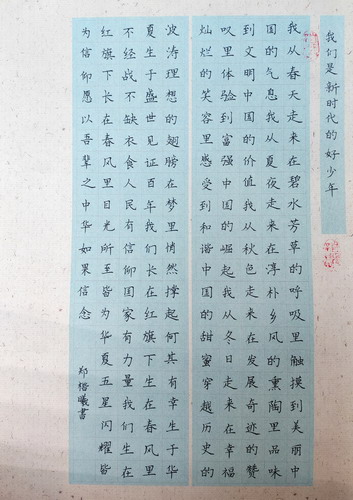 我们是新时代的好少年
我从春天走来在碧水芳草的呼吸里触摸到美丽中
国的气息我从夏夜走来在淳朴乡风的熏陶里品味
到文明中国的价值我从秋色走来在发展奇迹的赞
叹里体验到富强中国的崛起我从冬日走来在幸福
灿烂的笑容里感受到和谐中国的甜蜜穿越历史的
波涛理想的翅膀在梦里悄然撑起何其有幸生于华
夏生于盛世见证百年我们长在红旗下生在春风里
不经战不缺衣食人民有信仰国家有力量我们生在
红旗下长在春风里目光所至皆为华夏五星闪耀皆
为信仰愿以吾辈之中华如果信念
郑 曦書